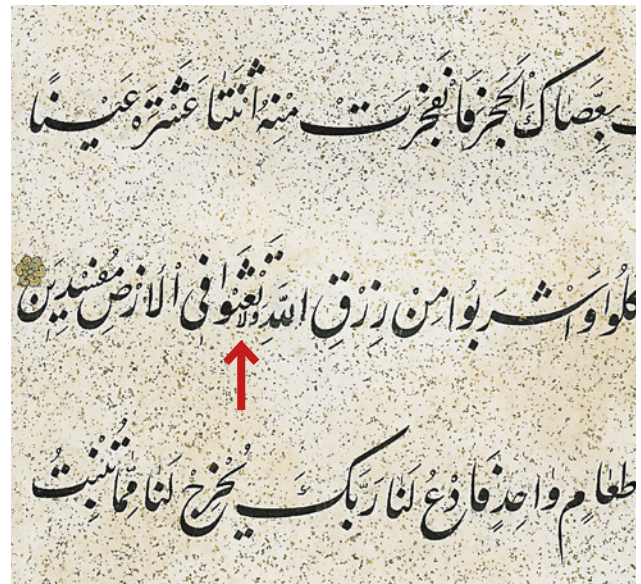 بِعَصَاكَ الْحَجَرَ فَانْفَجَرَتْ مِنْهُ اثْنَتَا عَشْرَةَ عَيْنًا
كُلُوا وَاشْرَبُوا مِنْ رِزْقِ اللَّهِ وَلَا تَعْثَوْا فِي الْأَرْضِ مُفْسِدِينَ
طَعَامٍ وَاحِدٍ فَادْعُ لَنَا رَبَّكَ يُخْرِجْ لَنَا مِمَّا تُنْبِتُ